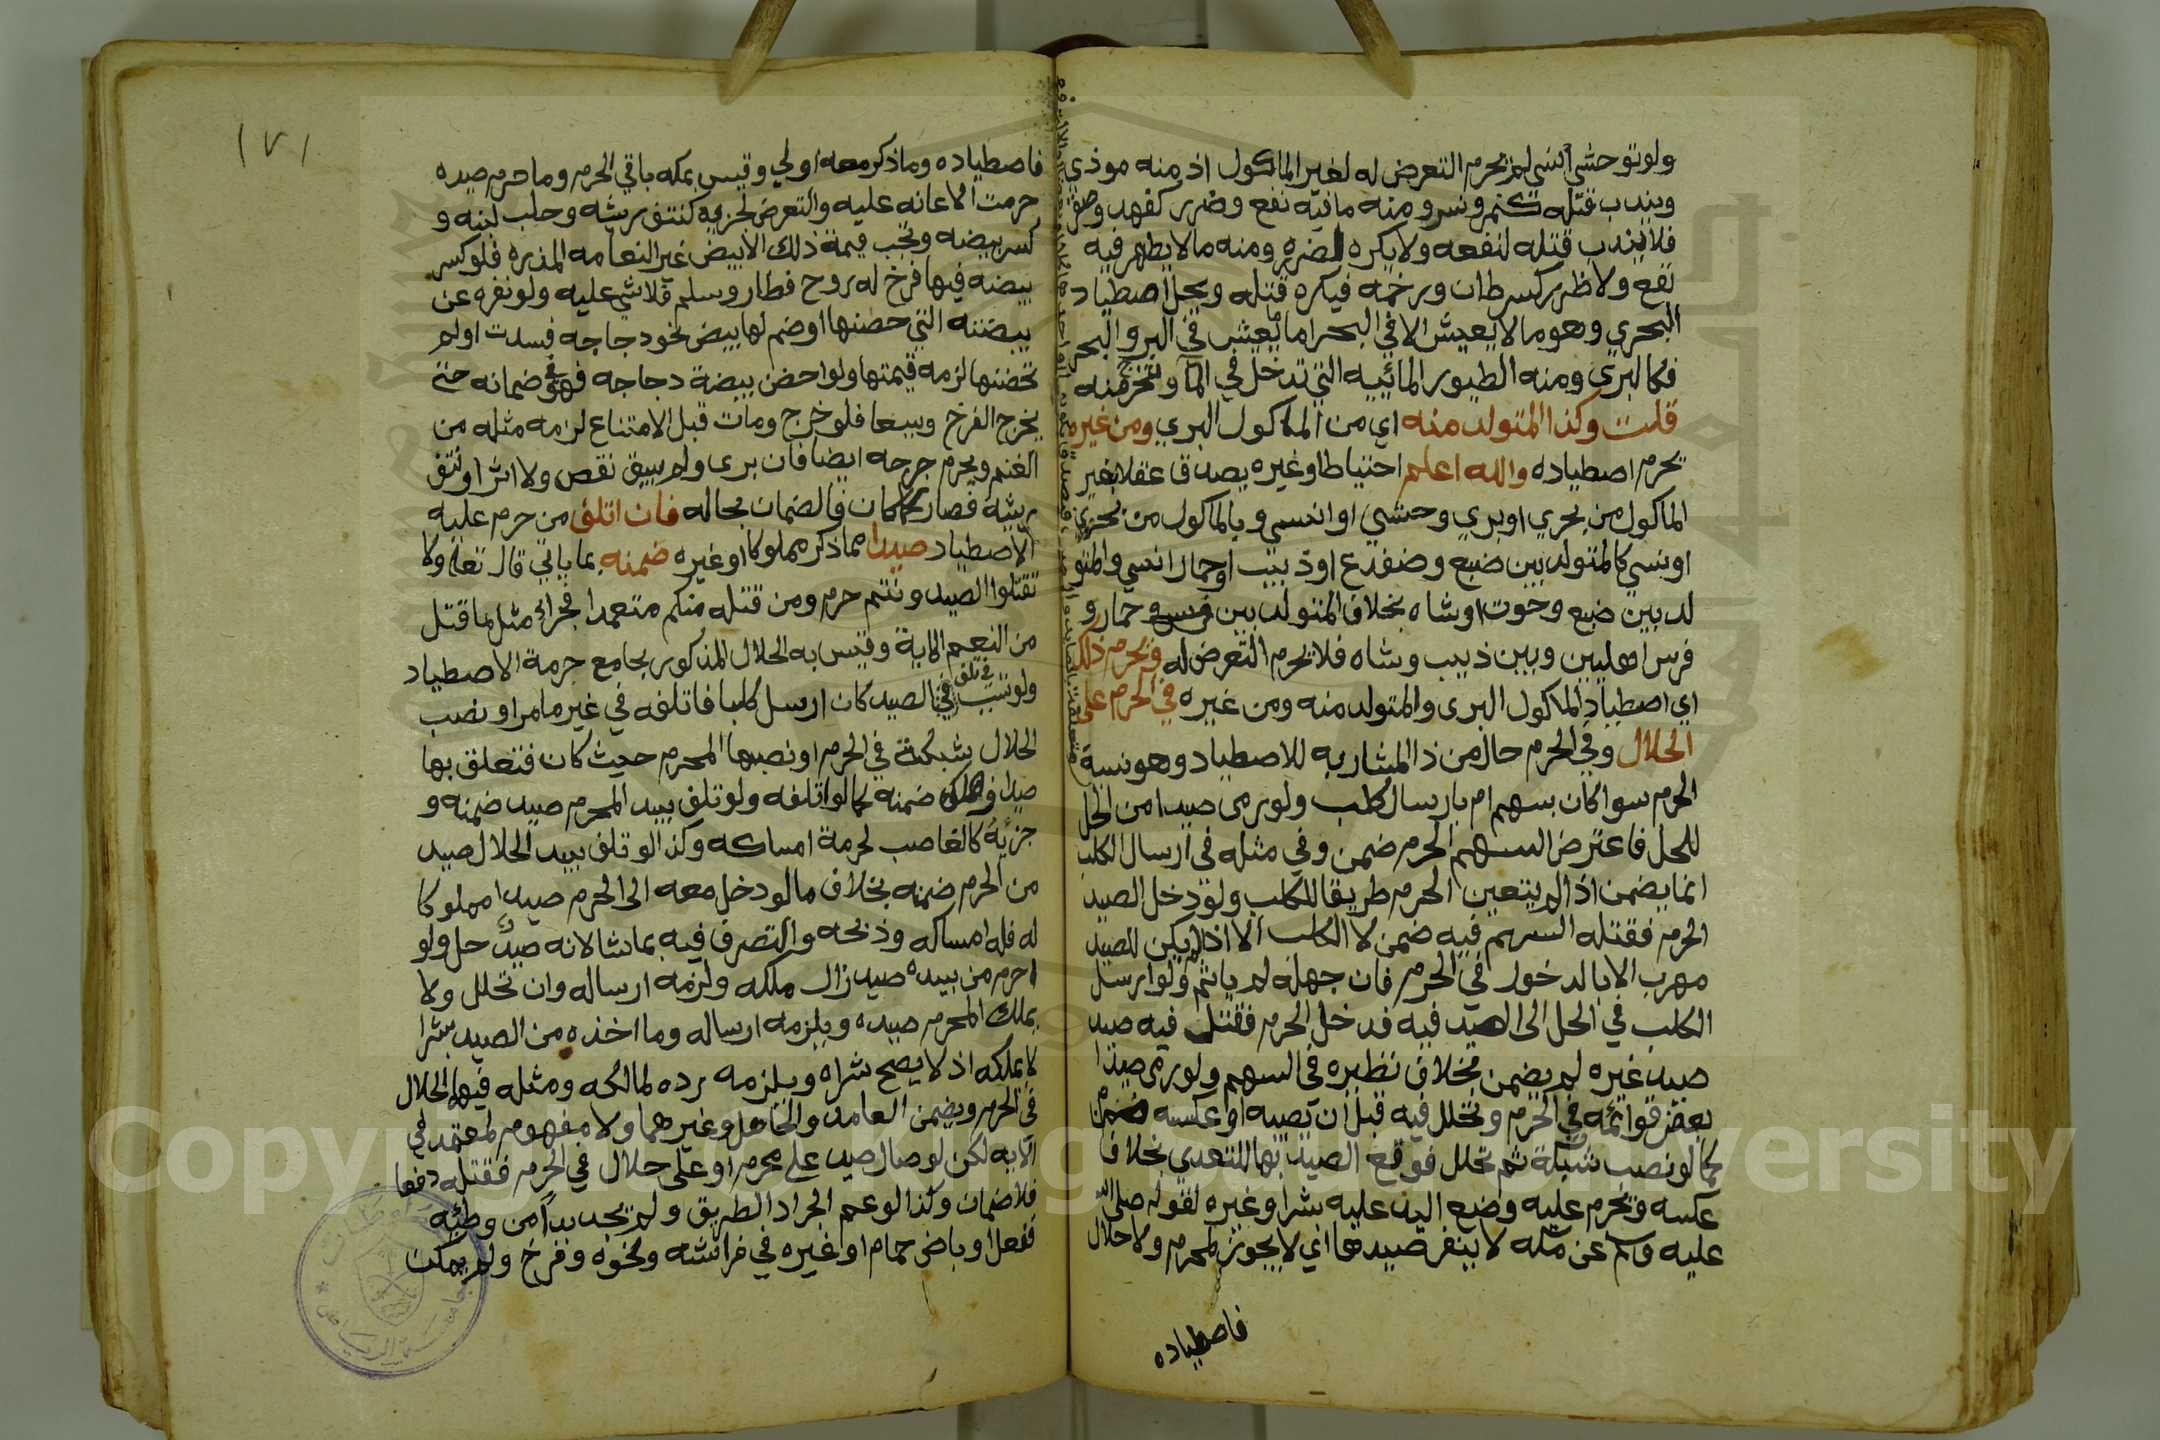 ولو توحش انسي لم يحرم التعرض له لغير الماكول اذ منه موذي
ويندب قتله كنمر ونسر ومنه ما فيه نفع وضرر كفهد وصقر
فلا يندب قتله لنفعه ولا يكره لضرره ومنه ما لا يظهر فيه
نفع ولا ضرر كسرطان ورخمه فيكره قتله ويحل اصطياد
البحري وهو ما لا يعيش الا في البحر اما ما يعيش في البر والبحر
فكالبري ومنه الطيور المائيه التي تدخل في الما وتخرج منه
قلت وكذا المتولد منه اي من الماكول البري ومن غيره
يحرم اصطياده والله اعلم احتياطا وغيره يصدق عقلا بغير
الماكول من بحري او بري وحشي او انسي وبالماكول من بحري
او نسي كالمتولد بين ضبع وضفدع او ذيب او حمار انسي والمتو
لد بين ضبع وحوت او شاه بخلاف المتولد بين فرس وحمار و
فرس اهليين وبين ذيب وشاه فلا يحرم التعرض له ويحرم ذلك
اي اصطياد الماكول البري والمتولد منه ومن غيره في الحرم على
الحلال وفي الحرم حال من ذا المشار به للاصطياد وهو نسبة
الحرم سوا كان بسهم ام بارسال كلب ولو رمى صيدا من الحل
للحل فاعترض السهم الحرم ضمن وفي مثله في ارسال الكلب
انما يضمن اذا لم يتعين الحرم طريقا للكلب ولو دخل الصيد
الحرم فقتله السهم فيه ضمن لا الكلب الا اذا لم يكن للصيد
مهرب الا بالدخول في الحرم فان جهله لم ياثم ولو ارسل
الكلب في الحل الى الصيد فيه فدخل الحرم فقتل فيه صيد
صيد غيره لم يضمن بخلاف نظيره في السهم ولو رمى صيدا
بعض قوائمه في الحرم وتحلل فيه قبل ان يصيبه او عكسه ضمن
كما لو نصب شبكة ثم تحلل فوقع الصيد بها للتعدي بخلاف
عكسه ويحرم عليه وضع اليد عليه بشرا وغيره لقوله صلى الله
عليه وسلم عن مكه لا ينفر صيدها اي لا يجوز لمحرم ولا حلال
فاصطياده
١٧١
فاصطياده وما ذكر معه اولي وقيس بمكه باقي الحرم وما حرم صيده
حرمت الاعانه عليه والتعرض لجزيه كنتف ريشه وحلب لبنه و
كسر بيضه وتجب قيمة ذلك الابيض غير النعامه المذره فلو كسر
بيضه فيها فرخ له روح فطار وسلم فلا شي عليه ولو نفره عن
بيضته التي حضنها او ضم لها بيض نحو دجاجه فسدت او لم
تحضنها لزمه قيمتها ولو احضن بيضة دجاجه فهو في ضمانه حتى
يخرج الفرخ ويسعا فلو خرج ومات قبل الامتناع لزمه مثله من
الغنم ويحرم جرحه ايضا فان برى ولم يبق نقص ولا اثر او نتف
ريشه فصار كما كان فالضمان بحاله فان اتلف من حرم عليه
الاصطياد صيدا مما ذكر مملوكا او غيره ضمنه بما ياتي قال تعلى ولا
تقتلوا الصيد ونتم حرم ومن قتله منكم متعمدا فجزاء مثل ما قتل
من النعم الاية وقيس به الحلال المذكور بجامع حرمة الاصطياد
ولو تسبب في تلف الصيد كان ارسل كلبا فاتلفه في غير ما مر او نصب
الحلال شبكة في الحرم او نصبها المحرم حيث كان فتعلق بها
صيد وهلك ضمنه كما لو اتلفه ولو تلف بيد المحرم صيد ضمنه و
جزئيه كالغاصب لحرمة امساكه وكذا لو تلف بيد الحلال صيد
من الحرم ضمنه بخلاف ما لو دخل معه الى الحرم صيد مملوكا
له فله امساكه وذبحه والتصرف فيه بما شا لانه صيد حل ولو
احرم من بيده صيد زال ملكه ولزمه ارساله وان تحلل ولا
يملك المحرم صيده ويلزمه ارساله وما اخذه من الصيد بشرا
لا يملكه اذ لا يصح شراه ويلزمه رده لمالكه ومثله فيها الحلال
في الحرم ويضمن العامد والجاهل وغيرهما ولا مفهوم لمتعمد في
الايه لكن لو صال صيد على محرم او على حلال في الحرم فقتله دفعا
فلا ضمان وكذا لو عم الجراد الطريق ولم يجد بدا من وطئه
ففعل او باض حمام او غيره في فراشه ونحوه وفرخ ولم يمكن
Copyright © King Saud University